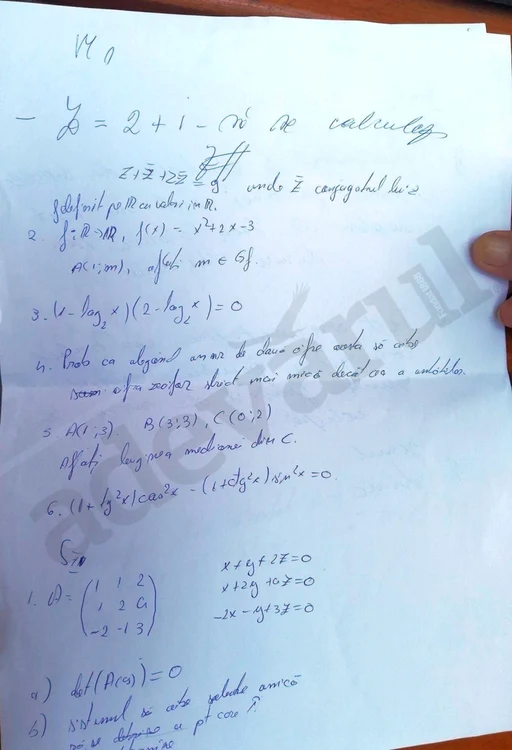 M1
- Z = 2 + i - să se calculeze
z + z̄ + z z̄ = 9 unde z̄ conjugatul lui z
f definit pe ℝ cu valori în ℝ.
2. f: ℝ→ℝ, f(x) = x²+2x-3
A(1;m), aflați m ∈ Gf.
3. (x - log₂x)(2 - log₂x) = 0
4. Prob ca alegând un nr de două cifre acesta să aibă
cifra zecilor strict mai mică decât cea a unităților.
5. A(1;3). B(3;3), C(0;2)
Aflați lungimea medianei din C.
6. (1+tg²x)cos²x - (1+ctg²x)sin²x = 0.
1. A = (1 1 2
1 2 a
-2 -1 3)
x+y+2z=0
x+2y+az=0
-2x-y+3z=0
a) det(A(a)) = 0
b) sistemul să aibă soluție unică
să se a pt care
adevarul